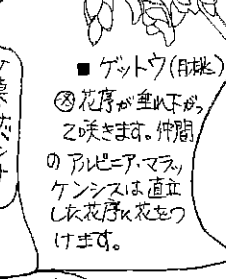 ■ ゲットウ(月桃)
花序が垂れ下がっ
て咲きます。仲間
の アルピニア・マラッ
ケンシスは直立
した花序に花をつ
けます。